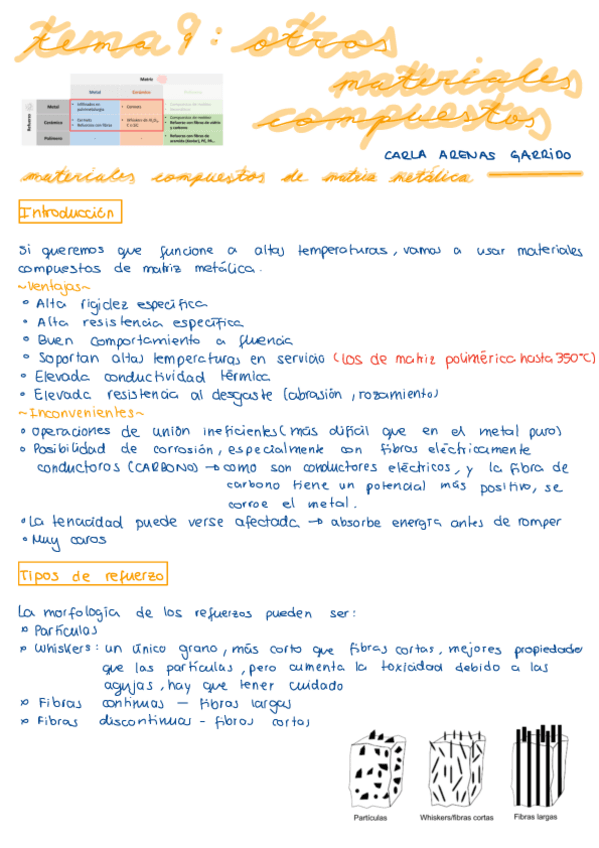 tema 9: otros
materiales
compuestos
Matriz
Metal Cerámico
Refuerzo
Metal
Infiltrados en pulvimetalurgia
Cermets
Cerámico
Cermets
Refuerzos con fibra
Polímero
CARLA ARENAS GARRIDO
materiales compuestos de matriz metálica
Introducción
Si queremos que funcione a altas temperaturas, vamos a usar materiales
compuestos de matriz metálica.
~Ventajas~
° Alta rigidez específica
° Alta resistencia específica
° Buen comportamiento a fluencia
° Soportan altas temperaturas en servicio (los de matriz polimérica hasta 350°C)
° Elevada conductividad térmica
° Elevada resistencia al desgaste (abrasión, rozamiento)
~Inconvenientes~
° Operaciones de unión ineficientes (más difícil que en el metal puro)
° Posibilidad de corrosión, especialmente con fibras eléctricamente
conductoras (CARBONO) → como son conductores eléctricos, y la fibra de
carbono tiene un potencial más positivo, se
corroe el metal.
° La tenacidad puede verse afectada → absorbe energía antes de romper
° Muy caros
Tipos de refuerzo
La morfología de los refuerzos pueden ser:
Partículas
Whiskers: un único grano, más corto que fibras cortas, mejores propiedades
que las partículas, pero aumenta la toxicidad debido a las
agujas, hay que tener cuidado
Fibras continuas — fibras largas
Fibras discontinuas - fibras cortas
Partículas Whiskers/fibras cortas Fibras largas